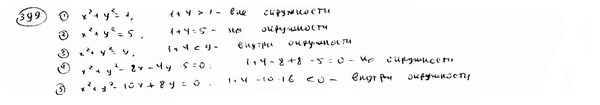 399 ① x² + y² = 1, 1+4 > 1 - вне окружности
② x² + y² = 5, 1+4 = 5 - на окружности
③ x² + y² = 9, 1+4 < 9 - внутри окружности
④ x² + y² - 8x - 4y - 5 = 0; 1+4 - 8 + 8 - 5 = 0 - на окружности
⑤ x² + y² - 10x + 8y = 0. 1+4 - 10 - 16 < 0 - внутри окружности